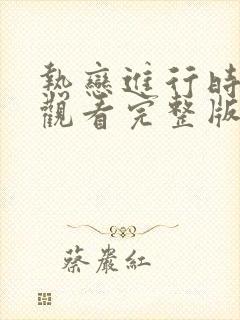 熱戀進行時
觀看完整版
蔡嚴紅